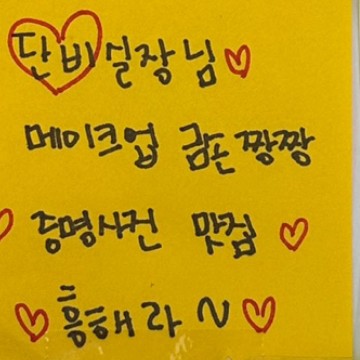 단비실장님
메이크업 금손 짱짱
증명사진 맛집
흥해라 ~